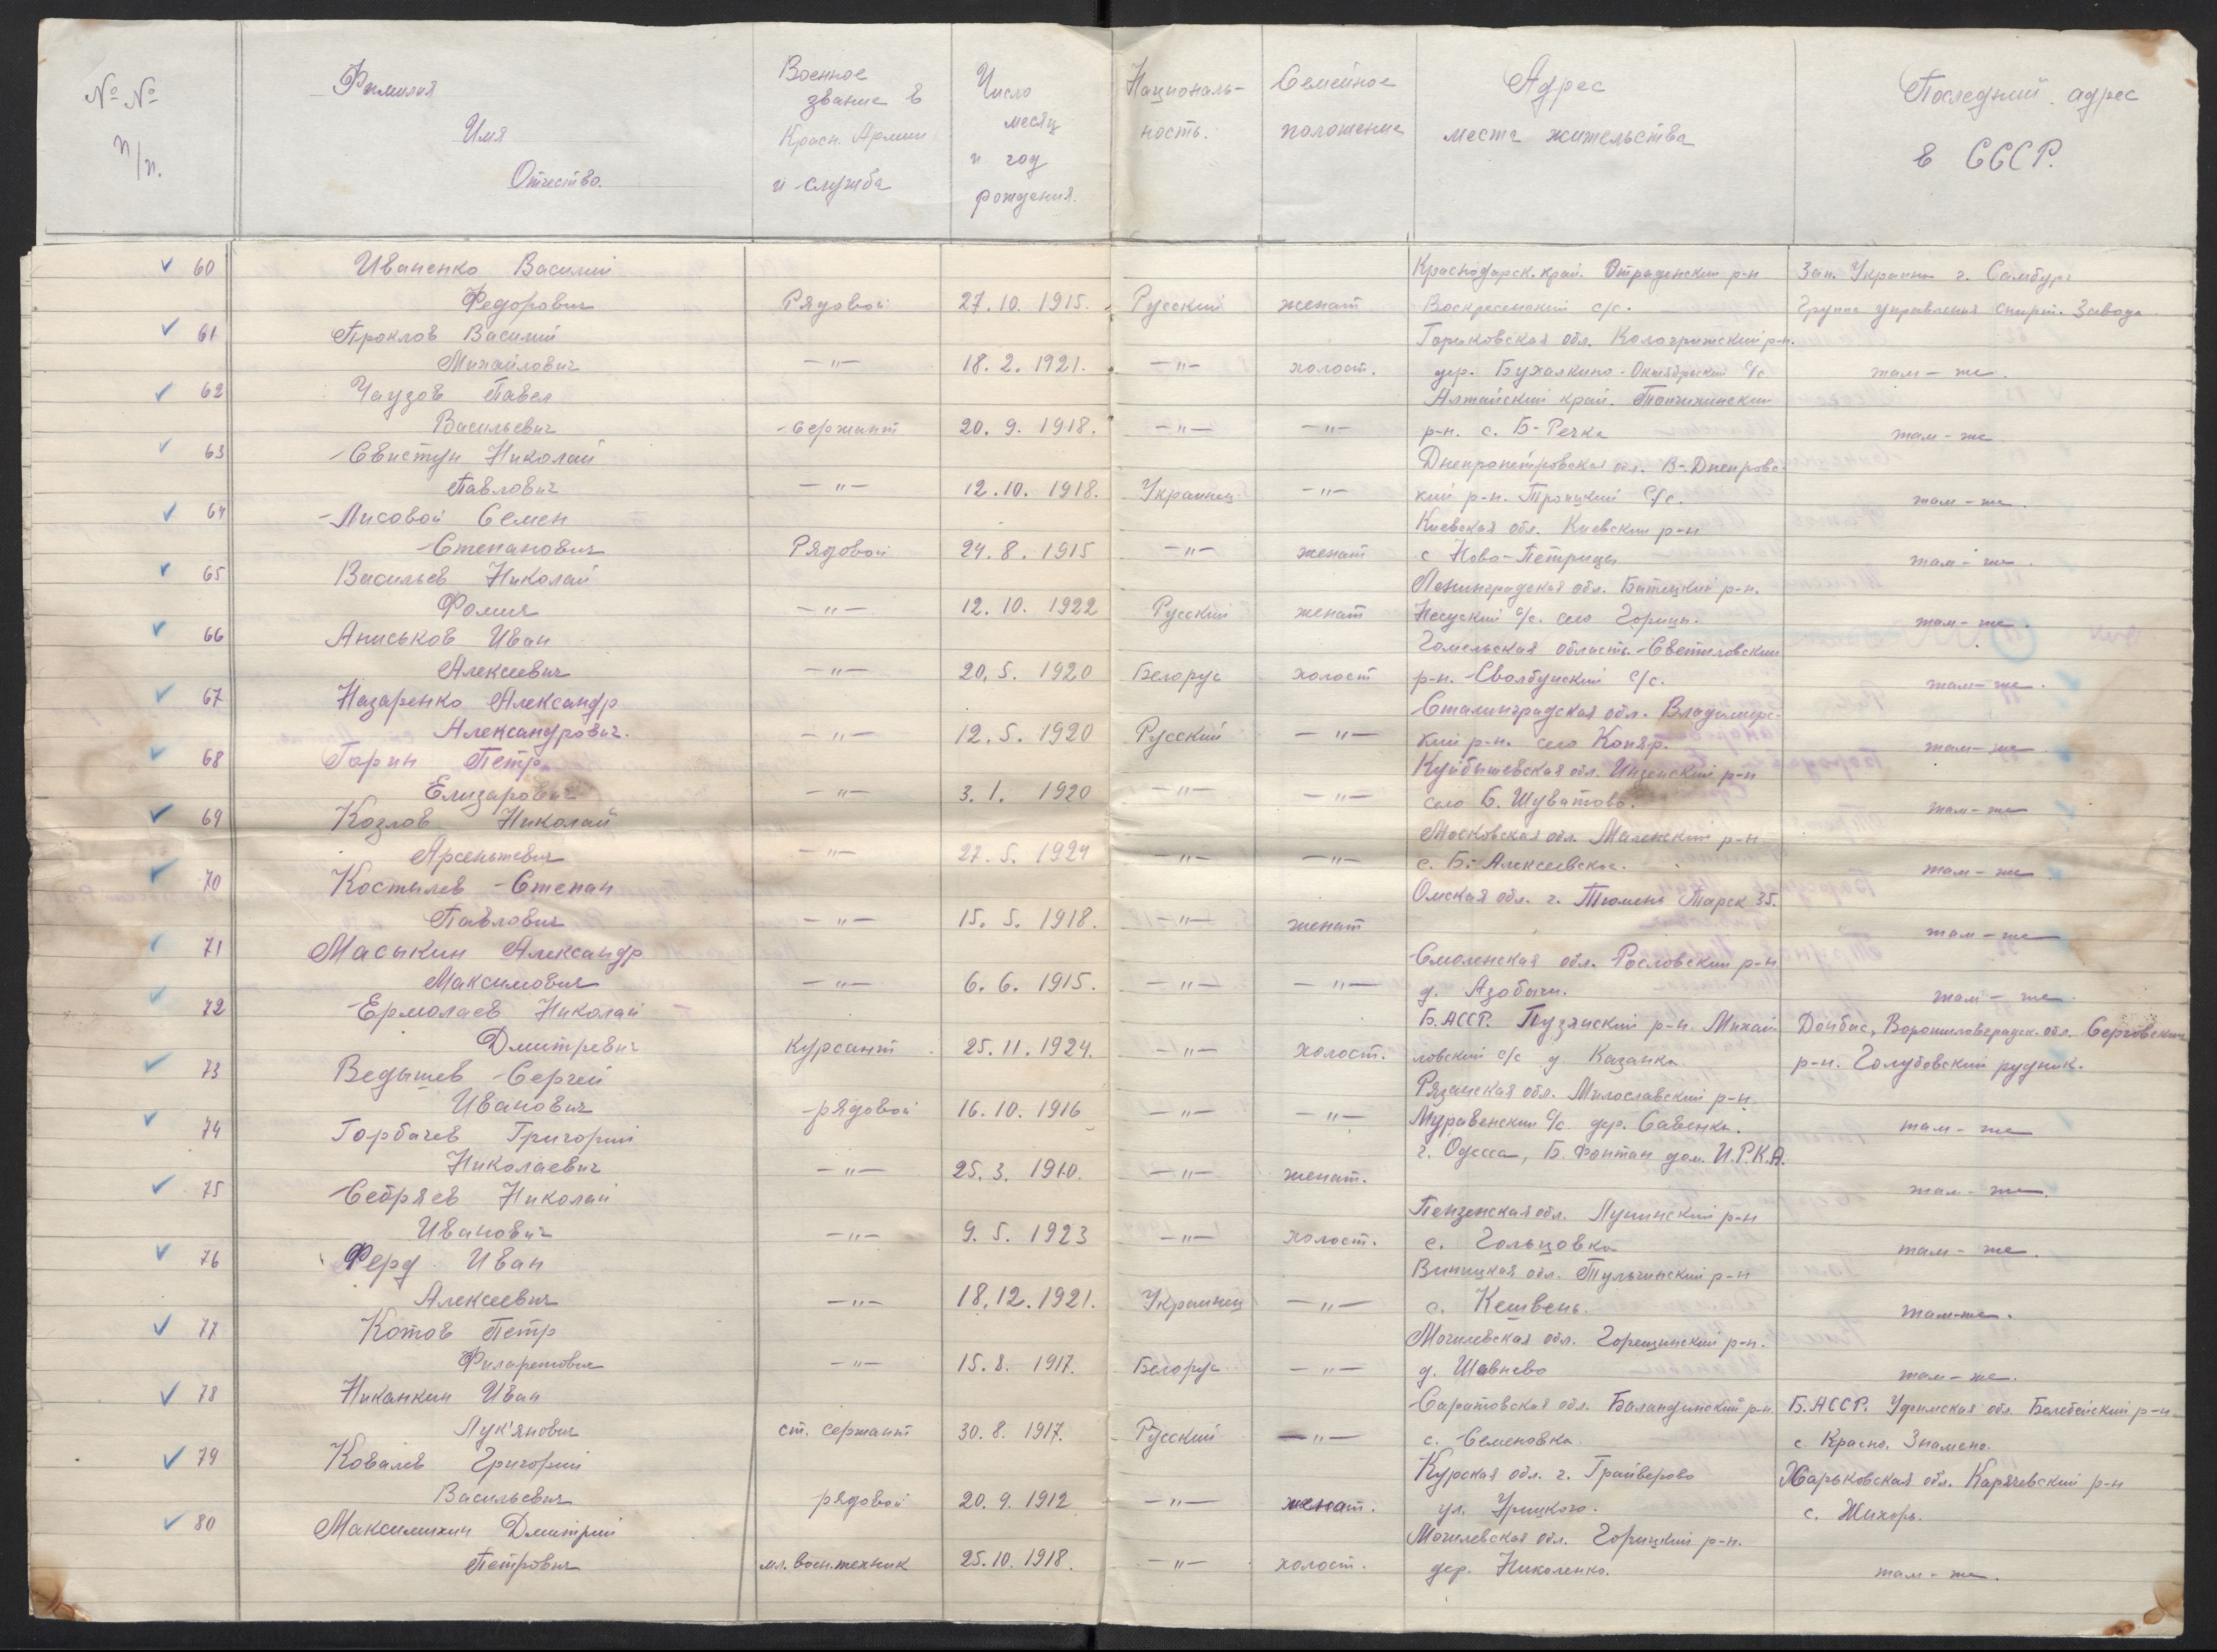 № №
п/п.
Фамилия
Имя
Отчество.
Военное
звание в
Красн. Армии
и служба
Число
месяц
и год
рождения.
Националь-
ность.
Семейное
положение
Адрес
места жительства
Последний адрес
в СССР.
60 Иваненко Василий Краснодарск. край. Отрадненский р-н Зап. Украина г. Самбург
Федорович Рядовой 27.10.1915. Русский женат Воскресенский с/с. Группа управления спирт. Завода
61 Проклов Василий Горьковская обл. Кологривский р-н.
Михайлович —"— 18.2.1921. —"— холост. дер. Бухалкино - Октябрьский с/с там-же.
62 Чаузов Павел Алтайский край. Топчихинский
Васильевич Сержант 20.9.1918. —"— —"— р-н. с. Б-Речка там-же
63 Свистун Николай Днепропетровская обл. В-Днепровс-
Павлович —"— 12.10.1918. Украинец —"— кий р-н. Троицкий с/с. там-же.
64 Лисовой Семен Киевская обл. Киевский р-н
Степанович Рядовой 24.8.1915 —"— женат с Ново-Петрицы там-же.
65 Васильев Николай Ленинградская обл. Батецкий р-н.
Фомич —"— 12.10.1922 Русский женат с/с. село Горицы. там-же.
66 Аниськов Иван Гомельская область. Светиловский
Алексеевич —"— 20.5.1920 Белорус холост р-н. с/с. там-же.
67 Назаренко Александр Сталинградская обл. Владимирс-
Александрович. —"— 12.5.1920 Русский —"— кий р-н. село Копяр. там-же
68 Гарин Петр Куйбышевская обл. Инзенский р-н
Елизарович —"— 3.1.1920 —"— —"— село Б. Шуватово. там-же
69 Козлов Николай Московская обл. Малинский р-н
Арсеньтевич —"— 27.5.1924 —"— —"— с. Б. Алексеевское. там-же
70 Костылев Степан Омская обл. г. Тюмень Тарск 35.
Павлович —"— 15.5.1918. —"— женат там-же
71 Маськин Александр Смоленская обл. Рославский р-н
Максимович —"— 6.6.1915. —"— —"— д. Азобичи. там-же.
72 Ермолаев Николай Б.АССР. р-н. Михай Донбас, Ворошиловградск. обл. Серговский
Дмитревич курсант 25.11.1924. —"— холост. ловский с/с д. Казанка р-н. Голубовский рудник.
73 Ведышев Сергей Рязанская обл. Милославский р-н.
Иванович рядовой 16.10.1916 —"— —"— Муравенский с/с. дер. Савенки. там-же
74 Горбачев Григорий г. Одесса, Б. Фонтан дом. И.Р.К.А.
Николаевич —"— 25.3.1910. —"— женат. там-же.
75 Себряев Николай Пензенская обл. Лунинский р-н
Иванович —"— 9.5.1923 —"— холост. с. Гольцовка там-же.
76 Ферд Иван Виницкая обл. Тульчинский р-н
Алексеевич —"— 18.12.1921. Украинец —"— с. Кешвень. там-же.
77 Котов Петр Могилевская обл. Горецинский р-н.
Филаретович —"— 15.8.1917. Белорус —"— д. Шавнево там-же.
78 Никанкин Иван Саратовская обл. Баландинский р-н. Б.АССР. Уфимская обл. Белебейский р-н
Лук'янович ст. сержант 30.8.1917. Русский —"— с. Семеновка. с. Красно. Знамено.
79 Ковалев Григорий Курская обл. г. Грайверово Харьковская обл. Карячевский р-н
Васильевич рядовой 20.9.1912 —"— женат. ул. Урицкого. с. Жихорь.
80 Максимихин Дмитрий Могилевская обл. Горицкий р-н.
Петрович мл. воен.техник 25.10.1918. —"— холост. дер. Николенко. там-же.